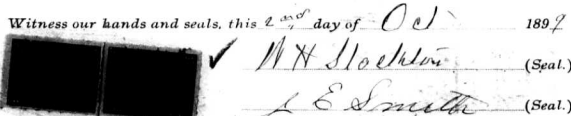 Witness our hands and seals, this 2nd day of Oct 1899
W H Stockton (Seal.)
J E Smith (Seal.)